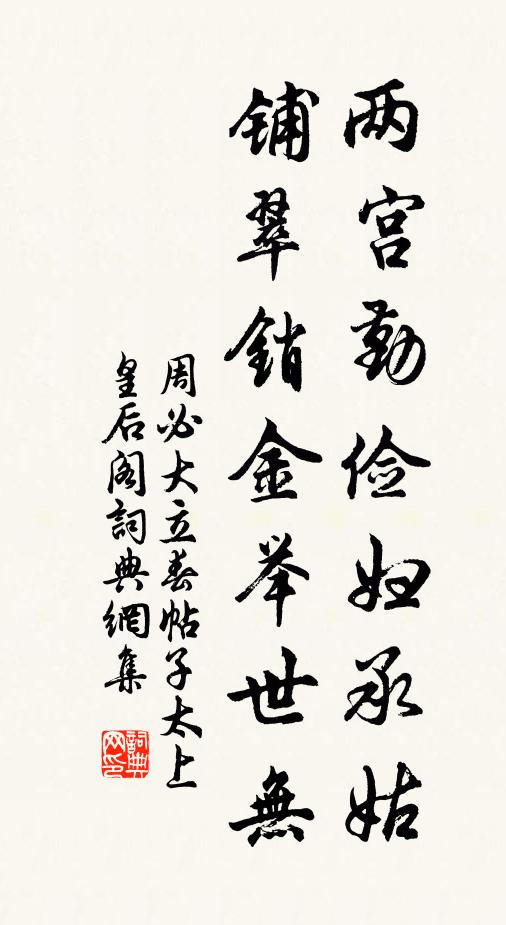 两宫勤俭妇承姑
铺翠销金举世無
周必大立春帖子太上
皇后阁詞典網集
詞典网印